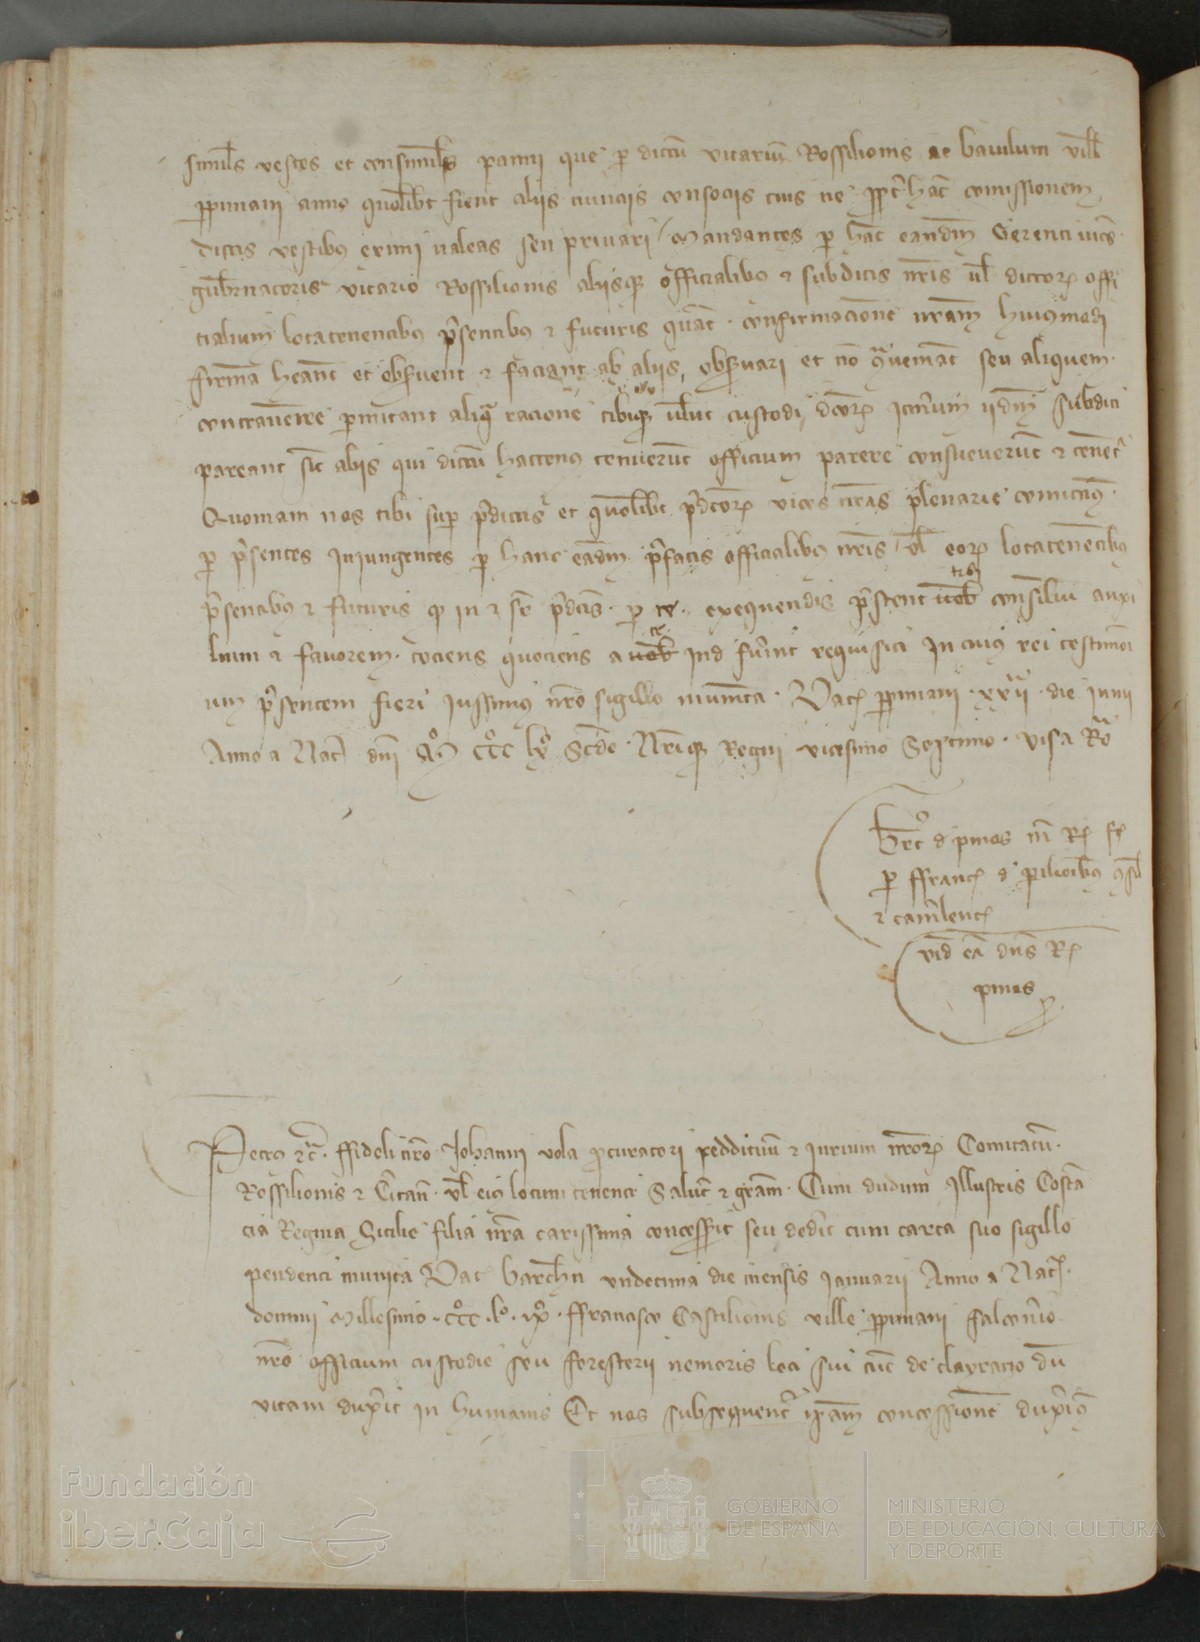 similes vestes et consimilis panni que per dictu vicariu Rossilionis ac baiulum ville
ppiniani anno quolibt fient aliis nunciis consociis tuis ne hac comissionem
dictis vestibus eximi valeas seu privari / Mandantes per hac eandm Gerenti vices
gubernatoris vicario Rossilionis aliisque officialibus et subditis nris vel dictor offi
cialium locatenentibus presentibus et futuris quat confirmacione nram huiusmodi
firma heant et observent et faciant ab aliis observari et no seu aliquem
contravenire permitant aliqua racione custodi iidm subditi
pareant sic aliis qui dictu hactenus tenuerut officium parere consueverut et tenet
Quoniam nos tibi super predictis et quolibt vices nras plenarie comictimus
per presentes Iniungentes per hanc eadm prefatis officialibus nris vel eor locatenentibus
presentibus et futuris in et pdcis per te exequendis prestent tibi consiliu auxi
lium et favorem tociens quociens a te Ind fuint requisiti In cuius rei testimoni
um presentem fieri iussimus nro sigillo munita Dat ppiniani xxii die Iunii
Anno a Nat dni Mo CCCo lxo Scdo Nrique Regni vicesimo Septimo Visa Ro
d pinos
per ffranc d pilionibus
et camlenc
vid ea dns R
pinos
Petrus etc ffideli nro Johanni vola pcuratori reddituu et Iurium nror Comitatu
Rossilionis et Citan vel eius locum tenenti Salut et gram Cum dudum Illustris Costa
cia Regina Sicilie filia nra carissima concesserit seu dedit cum carta suo sigillo
pendenti munita Dat barchn undecima die mensis Ianuarii Anno a Nat
domini Millesimo CCCo lo ixo ffrancisco Castilionis ville ppiniani falconerio
nro officium custodie seu foresterii nemoris loci sui de clayrano du
vitam duxit in humanis Et nos subsequent ipam concessione
Fundación
iberCaja
GOBIERNO
DE ESPAÑA
MINISTERIO
DE EDUCACIÓN, CULTURA
Y DEPORTE